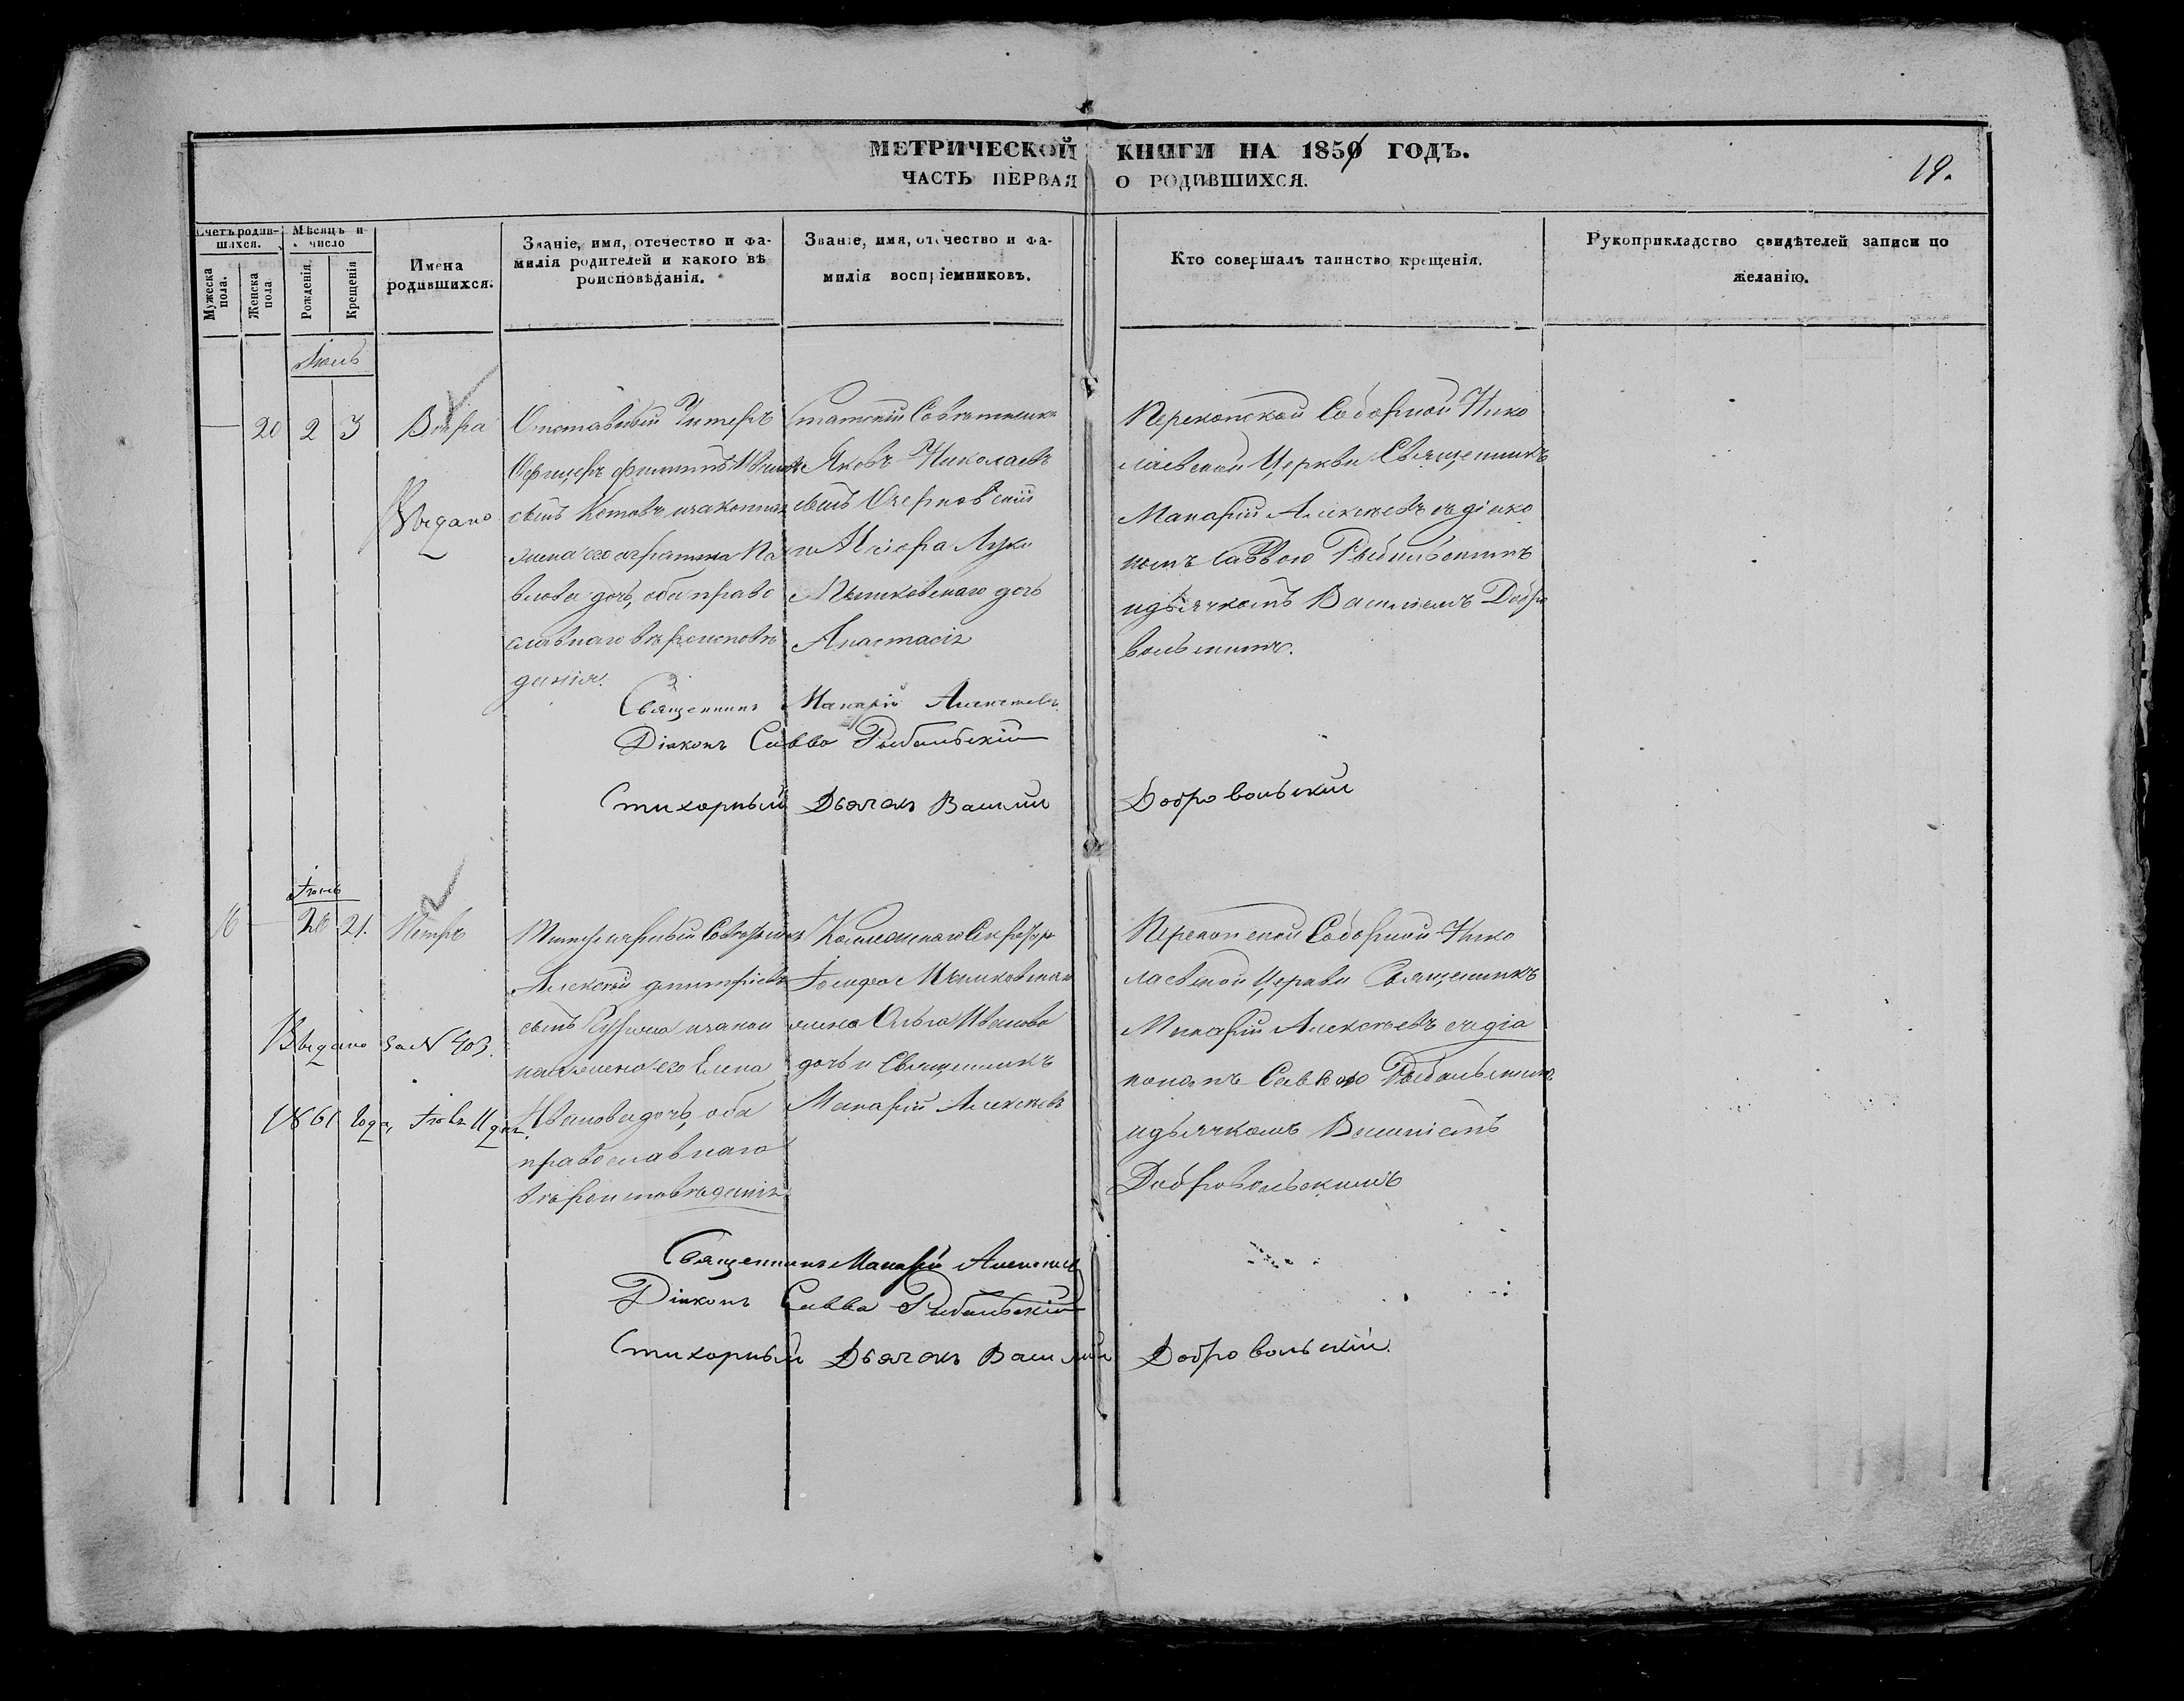 МЕТРИЧЕСКОЙ КНИГИ НА 1850 ГОДЪ.
ЧАСТЬ ПЕРВАЯ О РОДИВШИХСЯ.
19.
Счетъ родив-
шихся.
Мужеска пола.
Женска пола
Мѣсяцъ и
число
Рожденія.
Крещенія
Имена
родившихся.
Званіе, имя, отечество и фа-
милія родителей и какого вѣ
роисповѣданія.
Званіе, имя, отечество и фа-
милія воспріемниковъ.
Кто совершалъ таинство крещенія.
Рукоприкладство свидѣтелей записи по
желанію.
20 2 3 Вѣра
Выдано
Отставный Унтеръ
Офицеръ Филиппъ
сынъ Котовъ изаконная
жена его Па
влова дочь, оба право
славнаго вѣроисповѣ
данія.
Статскій Совѣтникъ
Яковъ Николаевъ
сынъ
и Луки
дочь
Анастасія
Перекопской Соборной Нико
лаевской Церкви Священникъ
Макарій Алексѣевъ съ діако
номъ Саввою Рыбальскимъ
идьячкомъ Василіемъ Добро
вольскимъ.
Священникъ Макарій Алексѣевъ.
Діаконъ Савва Рыбальскій
Стихарный Дьячекъ Василій Добровольскій
Іюнь
16 20 21. Петръ
Выдано за N 403.
1861 года, 11 дня.
Титулярный Совѣтникъ
Алексѣй Дмитріевъ
сынъ изакон
ная жена его Елена
Иванова дочь, оба
православнаго
вѣроисповѣданія
Коллежскаго
жена Ольга Иванова
дочь и Священникъ
Макарій Алексѣевъ
Перекопской Соборной Нико
лаевской Церкви Священникъ
Макарій Алексѣевъ съ діа
кономъ Саввою Рыбальскимъ
идьячкомъ Василіемъ
Добровольскимъ
Священникъ Макарій Алексѣевъ
Діаконъ Савва Рыбальскій
Стихарный Дьячекъ Василій Добровольскій.